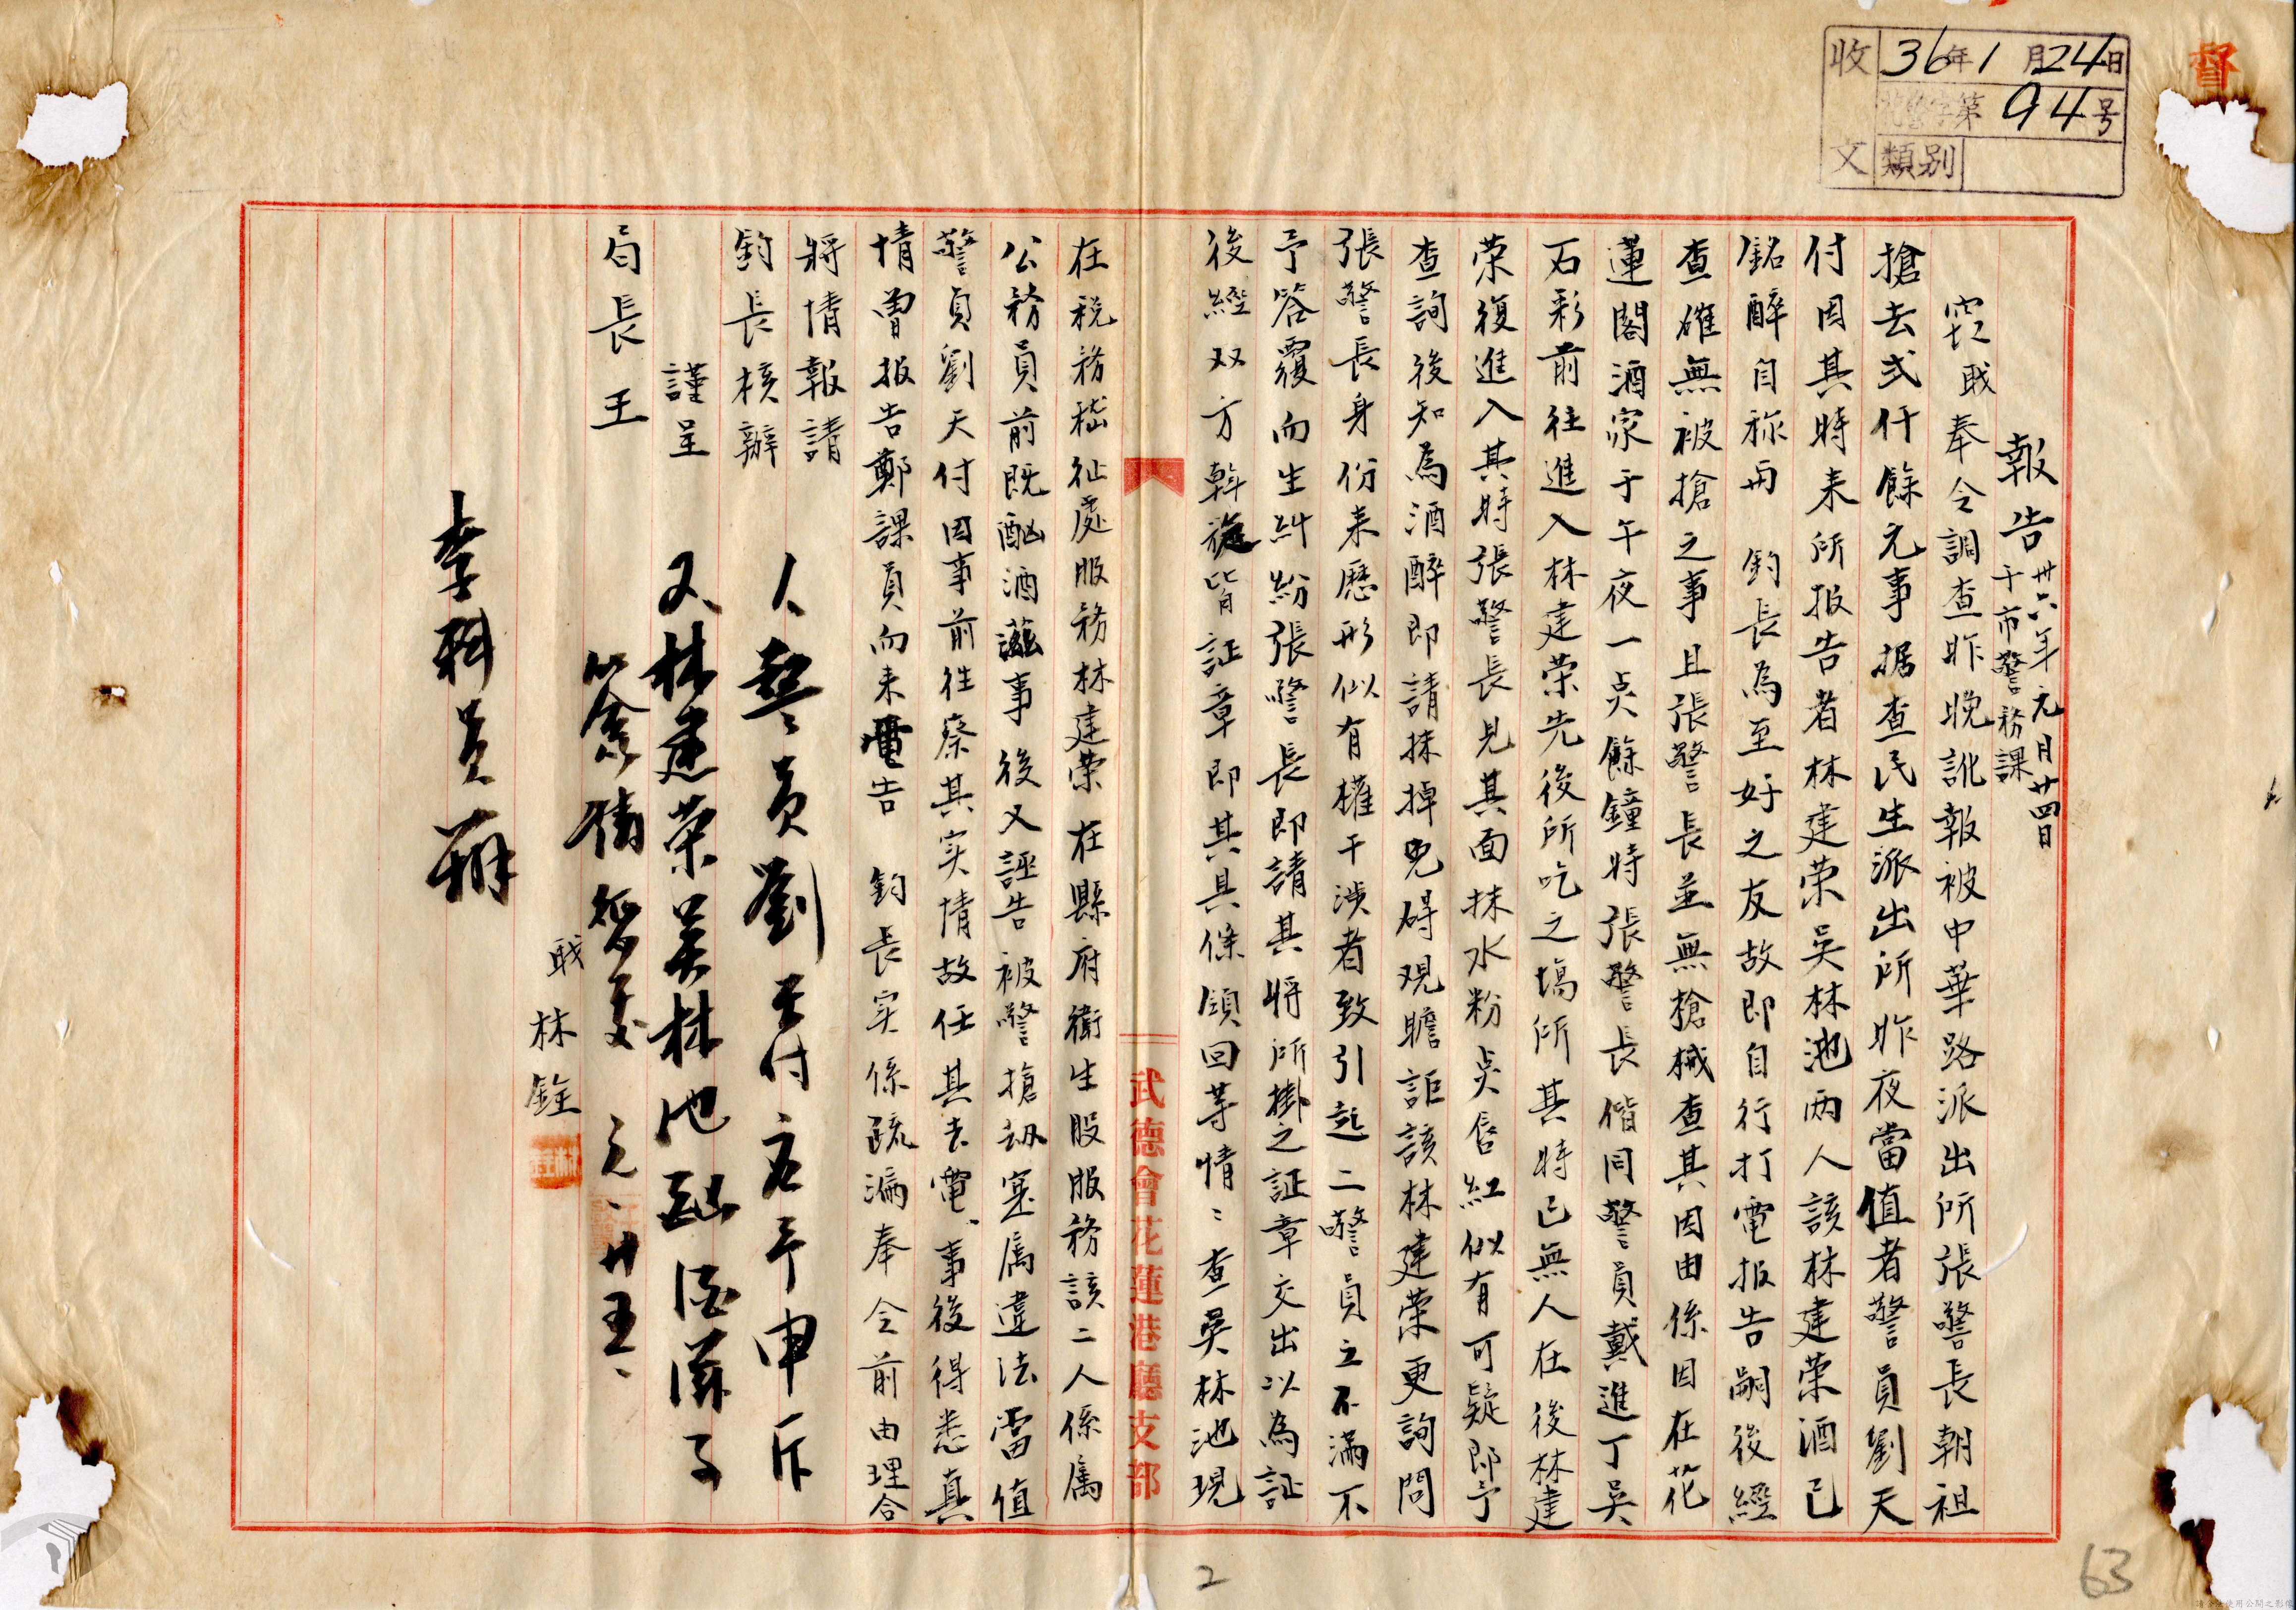 督
收文
36年1月24日
字第94号
類別
報告 卅六年元月廿四日
于市警務課
窃職奉令調查昨晚訛報被中華路派出所張警長朝祖
搶去弍仟餘元事据查民生派出所昨夜當值者警員劉天
付因其時来所报告者林建荣吳林池两人該林建荣酒已
銘醉自称毋 鈞長為至好之友故即自行打電报告嗣後經
查確無被搶之事且張警長並無槍械查其因由係因在花
蓮閣酒家于午夜一点餘鐘時張警長偕同警員戴進丁吳
石彩前往進入林建荣先後所吃之塲所其時已無人在後林建
荣復進入其時張警長見其面抹水粉点唇紅似有可疑即予
查詢後知為酒醉即請抹掉免碍观瞻詎該林建荣更詢問
張警長身份来歷形似有權干涉者致引起二警員之不滿不
予答覆而生糾紛張警長即請其将所掛之証章交出以為証
後經双方斡旋皆証章即其具條領回等情〻查吳林池現
武德會花蓮港廳支部
在税務嵇征處服務林建荣在縣府衛生股服務該二人係属
公務員前既酗酒滋事後又誣告被警搶劫寔属違法當值
警員劉天付因事前往察其实情故任其去電、事後得悉真
情曽报告鄭課員而未電告 鈞長实係疏漏奉令前由理合
将情報請
鈞長核辦
謹呈
局長王
職林銓
人警員劉天付應予申斥
又林建荣吳林池酗酒滋事
元、廿五、
李科員辦
2
63